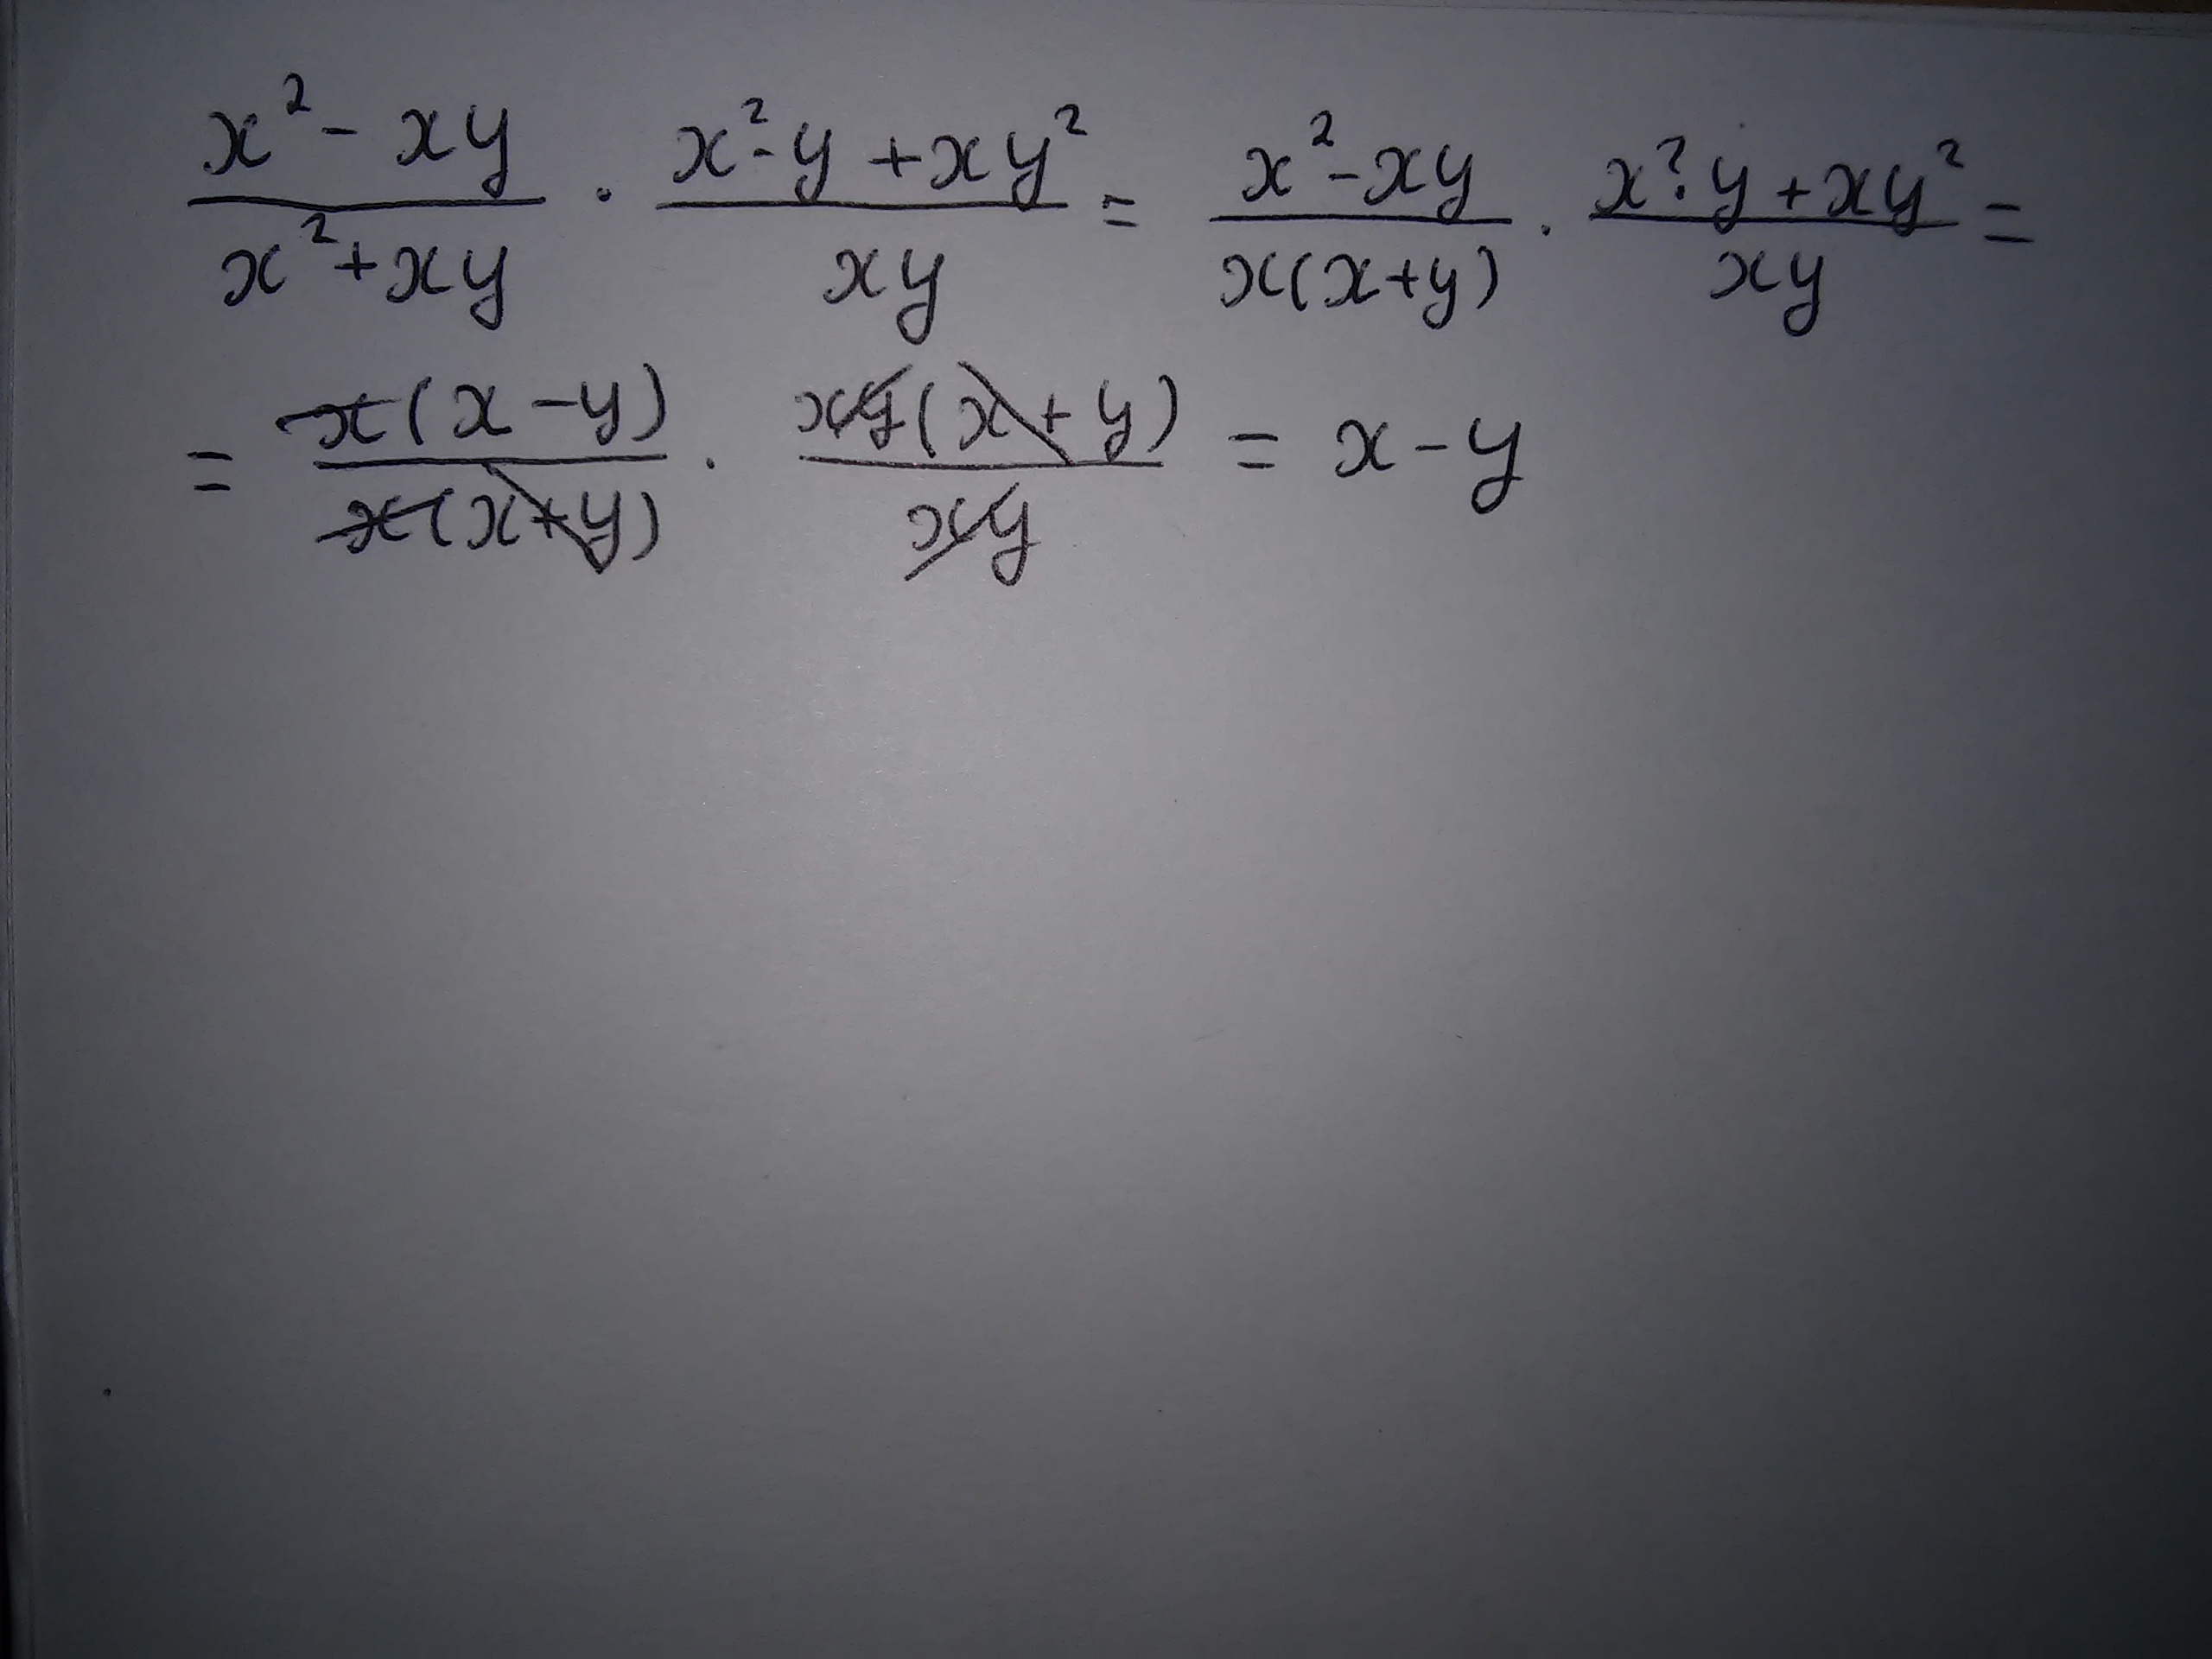 (x² - xy)/(x² + xy) · (x²·y + xy²)/(xy) = (x² - xy)/(x(x+y)) · (x²·y + xy²)/(xy) =
= (x(x-y))/(x(x+y)) · (xy(x+y))/(xy) = x - y